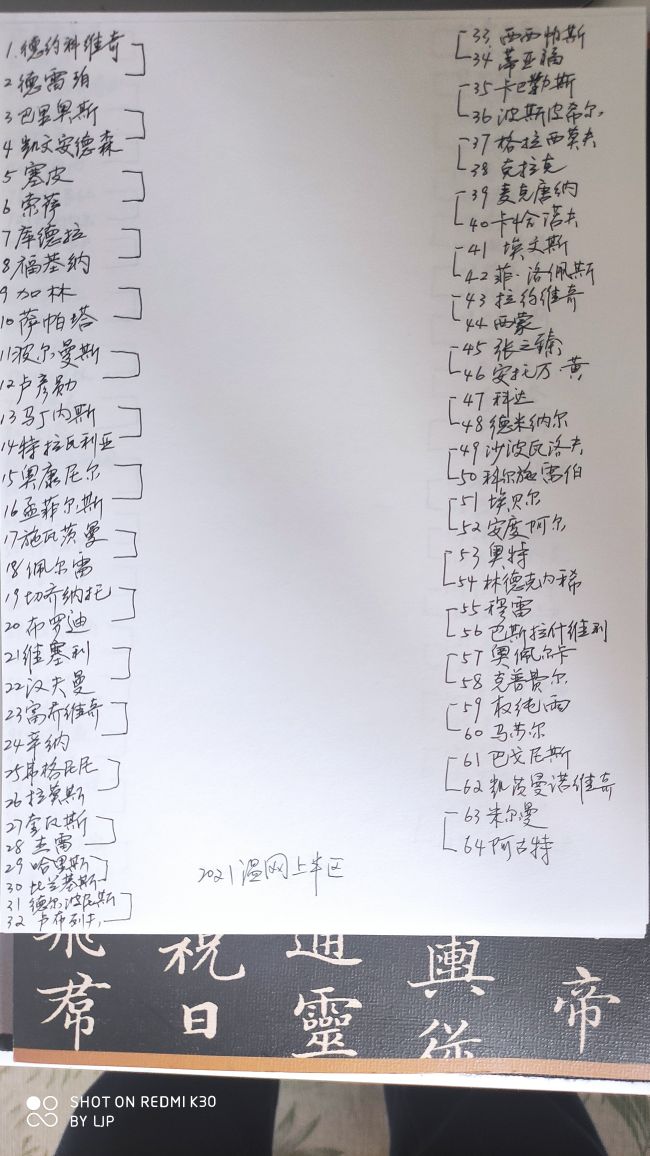 1.德约科维奇
2 德雷珀
3 巴里奥斯
4 凯文安德森
5 塞皮
6 索萨
7 库德拉
8 福基纳
9 加林
10 萨帕塔
11 波尔曼斯
12 卢彦勋
13 马丁内斯
14 特拉瓦利亚
15 奥康尼尔
16 孟菲尔斯
17 施瓦茨曼
18 佩尔雷
19 切齐纳托
20 布罗迪
21 维塞利
22 汉夫曼
23 富乔维奇
24 辛纳
25 弗格尼尼
26 拉莫斯
27 奎汉斯
28 杰雷
29 哈里斯
30 比兰基斯
31 德尔波尼斯
32 卢布列夫
33 西西帕斯
34 蒂亚福
35 卡巴勒斯
36 波斯皮希尔
37 格拉西莫夫
38 克拉克
39 麦克唐纳
40 卡恰诺夫
41 埃文斯
42 菲·洛佩斯
43 拉约维奇
44 西蒙
45 张之臻
46 安托万·黄
47 科达
48 德米纳尔
49 沙波瓦洛夫
50 科尔施雷伯
51 埃贝尔
52 安度阿尔
53 奥特
54 林德克内稀
55 穆雷
56 巴斯拉什维利
57 奥佩尔卡
58 克普费尔
59 权纯雨
60 马苏尔
61 巴戈尼斯
62 凯茨曼诺维奇
63 米尔曼
64 阿古特
2021温网上半区
飛 祝 通 輿 帝
群 日 靈 從
SHOT ON REDMI K30
BY LJP